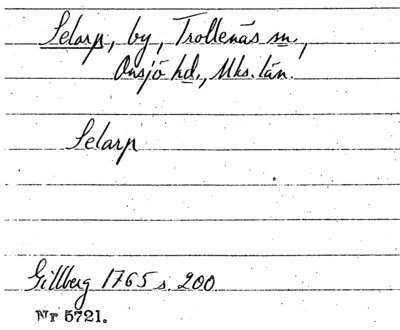 Selarp, by, Trollenäs sn.,
Onsjö hd., Mks. län.
Selarp
Gillberg 1765 s. 200
Nr 5721.